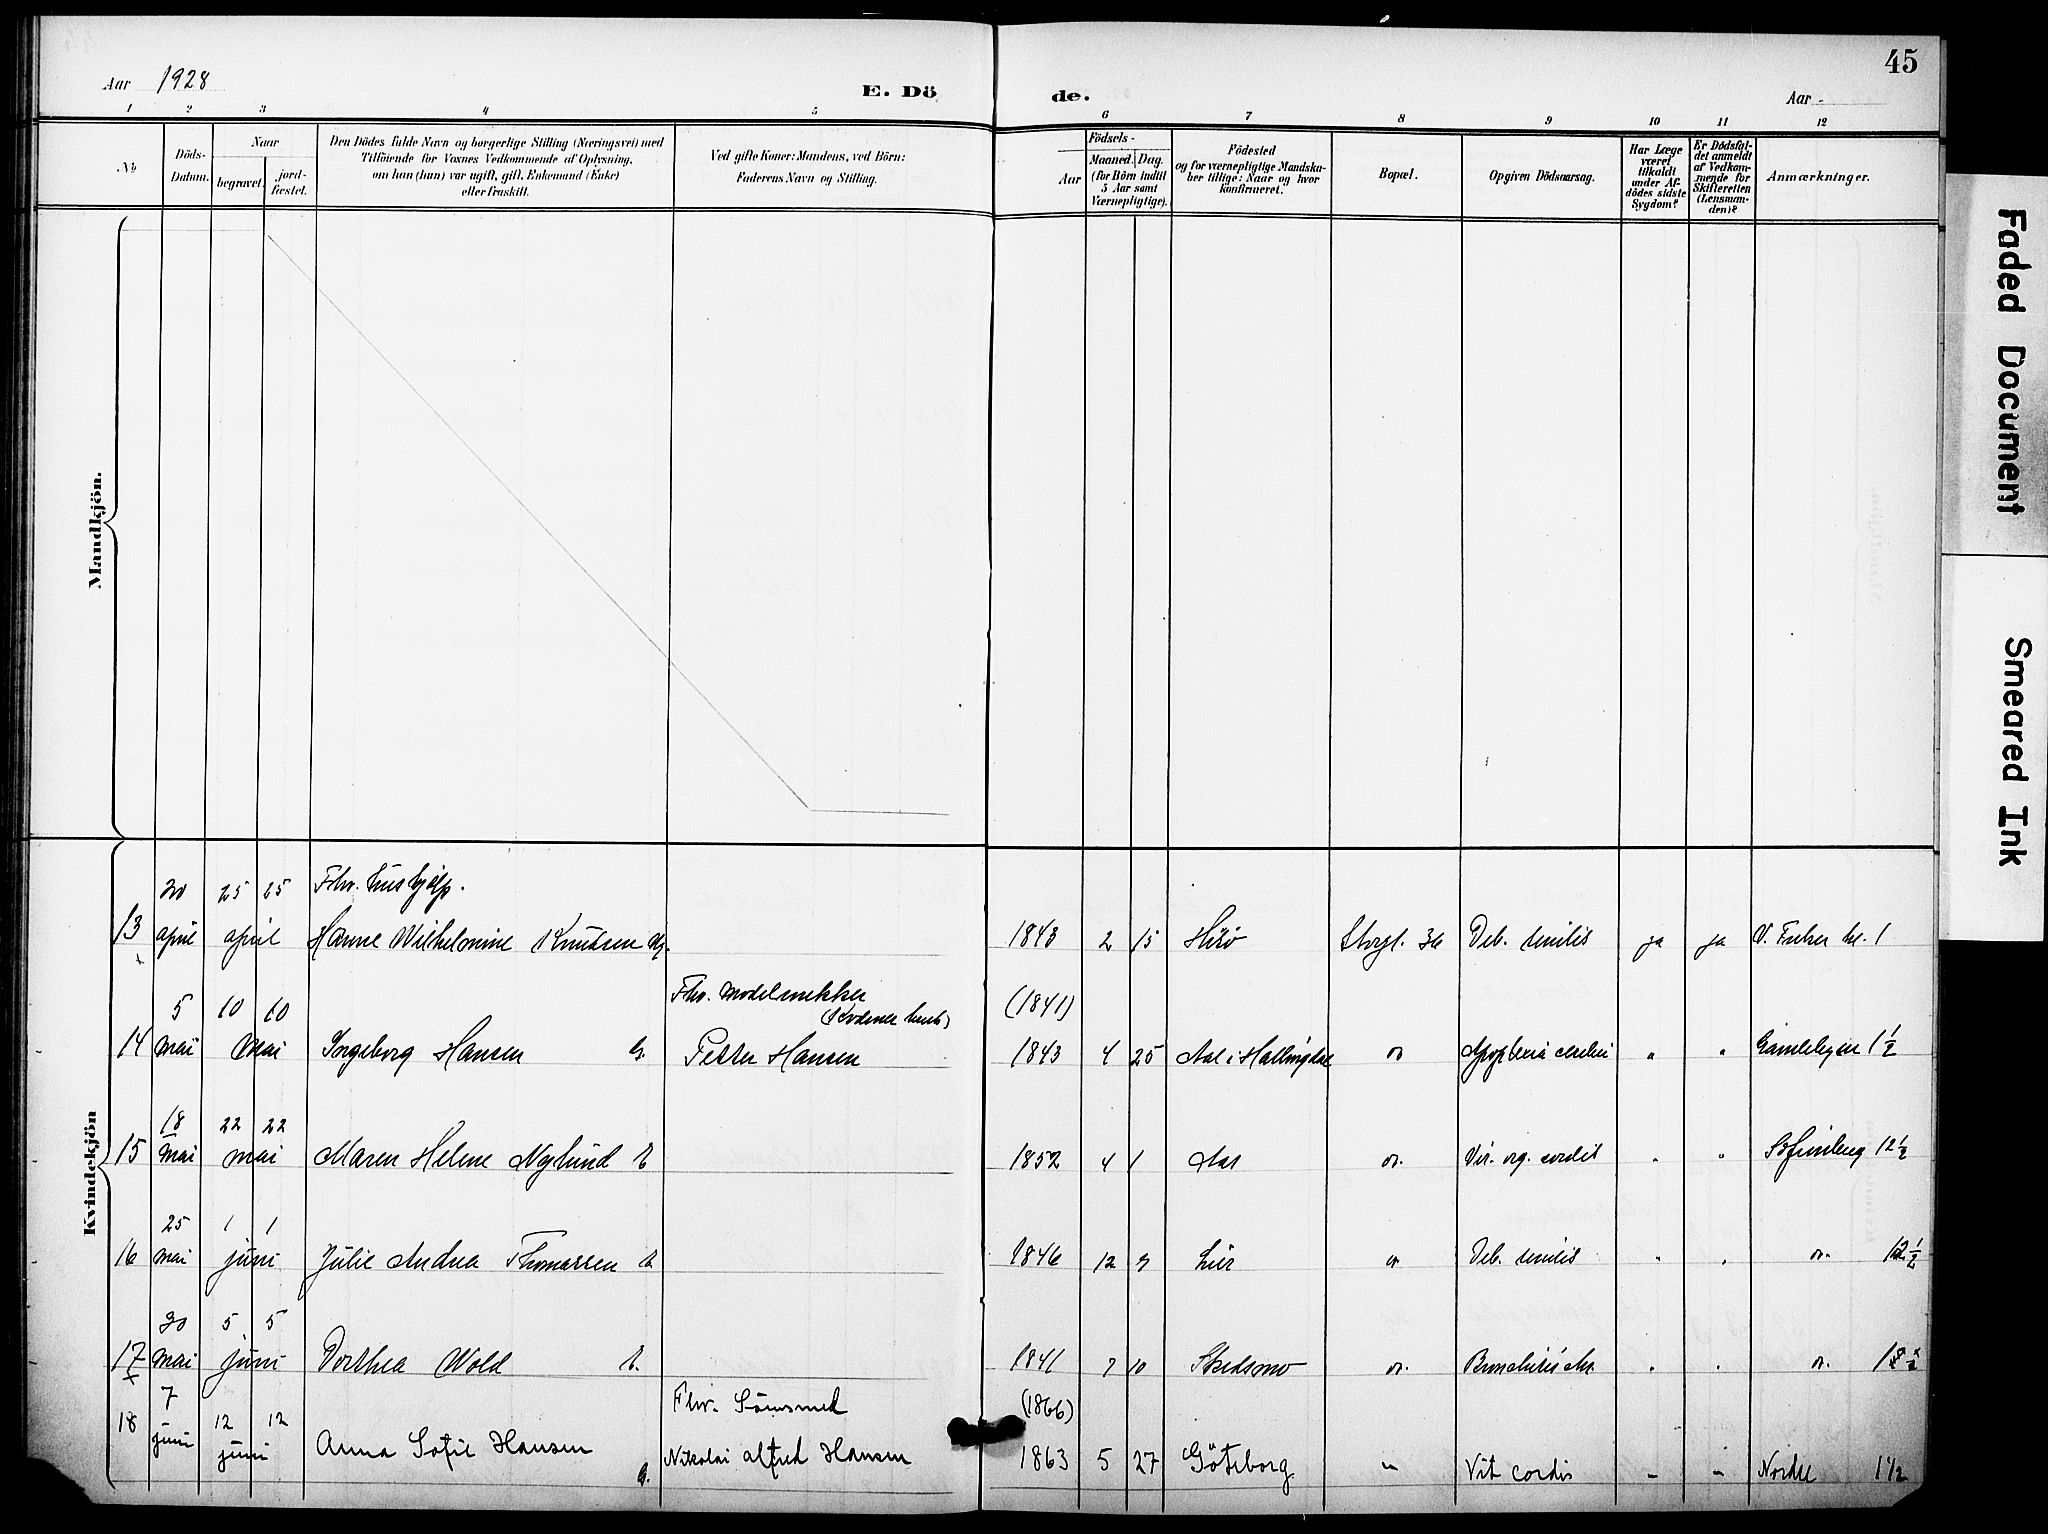 45
Aar 1928
E. Dö de.
Aar
1 2 3 4 5 6 7 8 9 10 11 12
No
Döds-Datum.
Naar
begravet.
jord-fæstet.
Den Dödes fulde Navn og borgerlige Stilling (Næringsvei) med
Tilföiende for Voxnes Vedkommende af Oplysning,
om han (hun) var ugift, gift, Enkemand (Enke)
eller fraskilt.
Ved gifte Koner: Mandens, ved Börn:
Faderens Navn og Stilling.
Födsels-
Aar
Maaned. Dag.
(for Börn indtil
5 Aar samt
Værnepligtige).
Födested
og for værnepligtige Mandska-
ber tillige: Naar og hvor
konfirmeret.
Bopæl.
Opgiven Dödsaarsag.
Har Læge
været
tilkaldt
under Af-
dödes sidste
Sygdom?
Er Dödsfal-
det anmeldt
af Vedkom-
mende for
Skifteretten
(Lensman-
den)?
Anmærkninger.
Mandkjön.
Kvindekjön
20 25 25 Fhv. hushjelp.
13 april april Hanne Wilhelmine Knutsen ug. 1843 2 15 Storgt. 36 Deb. senilis ja ja 1
5 10 10 Fhv. modelsnekker (1841)
14 mai mai Ingeborg Hansen G. Petter Hansen 1843 4 25 Aal i Hallingdal " Apoplexia cerebri " " Gamlebyen 1½
18 22 22
15 mai mai Maren Helene Nylund E 1852 4 1 Aas " Vit. org. cordis " " Sofienberg 12½
25 1 1
16 mai juni Julie Andrea Thomassen E. 1846 12 9 Lier " Deb. senilis " " " 12½
30 5 5
17 mai juni Dorthea Wold E. 1841 7 10 Skedsmo " Bronchitis chr. " " "
7 12 12 Fhv. Sömsmed (1866)
18 juni juni Anna Sofie Hansen G. Nikolai Alfred Hansen 1863 5 27 Göteborg " Vit. cordis " " Nordre 1½
Faded Document
Smeared Ink